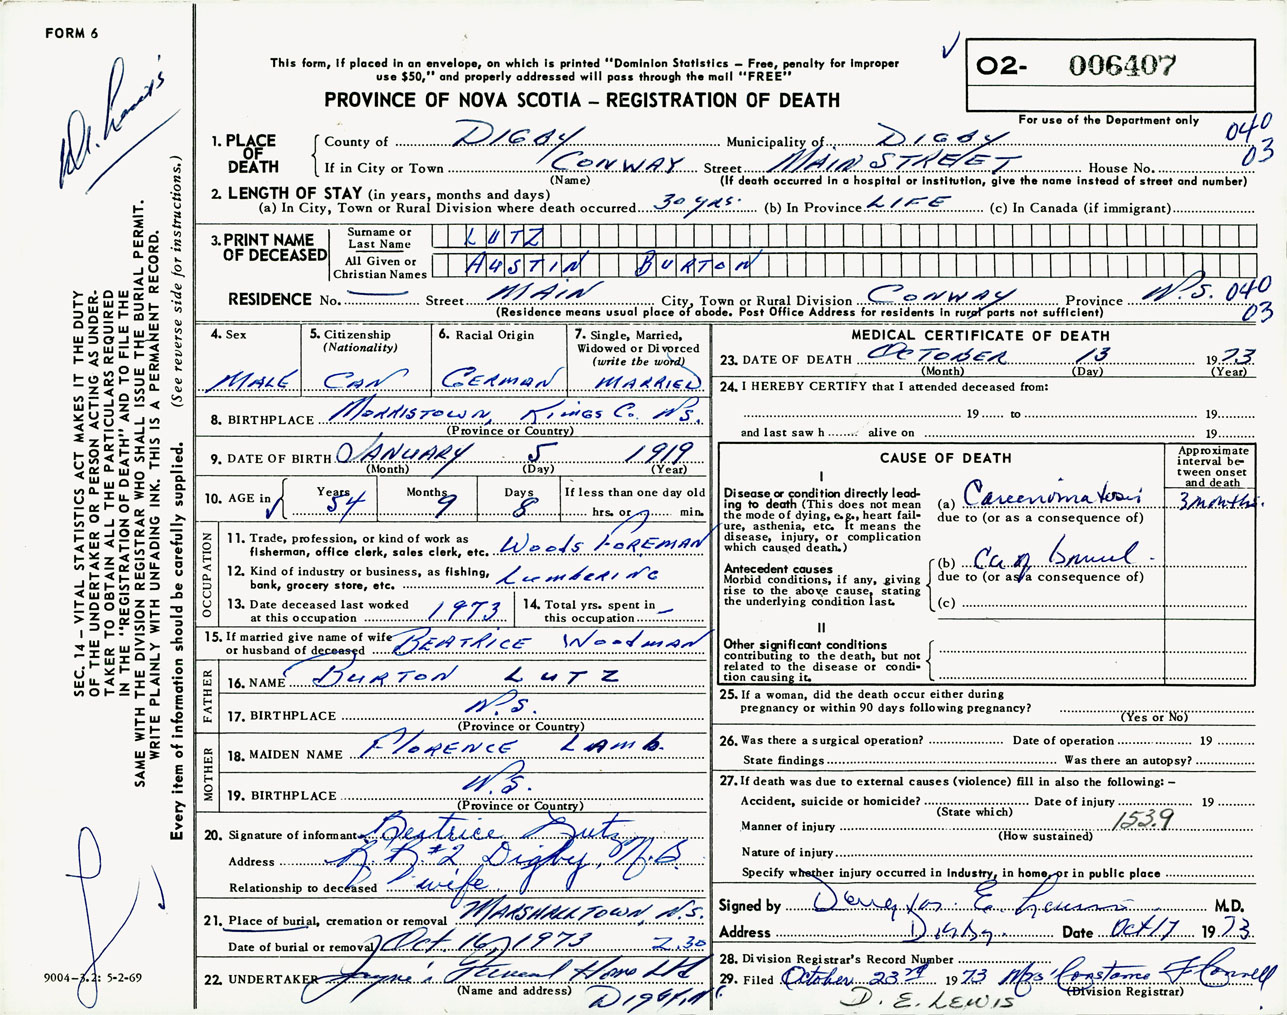 FORM 6
Dr. Lewis
This form, if placed in an envelope, on which is printed "Dominion Statistics – Free, penalty for improper
use $50," and properly addressed will pass through the mail "FREE"
PROVINCE OF NOVA SCOTIA – REGISTRATION OF DEATH
O2- 006407
For use of the Department only
040
03
1. PLACE OF DEATH
County of DIGBY Municipality of DIGBY
If in City or Town CONWAY Street MAIN STREET House No.
(Name) (If death occurred in a hospital or institution, give the name instead of street and number)
2. LENGTH OF STAY (in years, months and days)
(a) In City, Town or Rural Division where death occurred 30 yrs. (b) In Province LIFE (c) In Canada (if immigrant)
3. PRINT NAME OF DECEASED
Surname or Last Name LUTZ
All Given or Christian Names AUSTIN BURTON
RESIDENCE No. — Street MAIN City, Town or Rural Division CONWAY Province N.S. 040
(Residence means usual place of abode. Post Office Address for residents in rural parts not sufficient) 03
4. Sex MALE
5. Citizenship (Nationality) CAN
6. Racial Origin GERMAN
7. Single, Married, Widowed or Divorced (write the word) MARRIED
8. BIRTHPLACE MORRISTOWN, KINGS CO. N.S.
(Province or Country)
9. DATE OF BIRTH JANUARY 5 1919
(Month) (Day) (Year)
10. AGE in Years 54 Months 9 Days 8 If less than one day old
hrs. or min.
OCCUPATION
11. Trade, profession, or kind of work as
fisherman, office clerk, sales clerk, etc. WOODS FOREMAN
12. Kind of industry or business, as fishing,
bank, grocery store, etc. LUMBERING
13. Date deceased last worked
at this occupation 1973
14. Total yrs. spent in
this occupation –
15. If married give name of wife
or husband of deceased BEATRICE WOODMAN
FATHER
16. NAME BURTON LUTZ
17. BIRTHPLACE N.S.
(Province or Country)
MOTHER
18. MAIDEN NAME FLORENCE LAMB.
19. BIRTHPLACE N.S.
(Province or Country)
20. Signature of informant Beatrice Lutz
Address R.R.#2 Digby, N.S.
Relationship to deceased wife
21. Place of burial, cremation or removal MARSHALLTOWN, N.S.
Date of burial or removal Oct 16, 1973 2.30
22. UNDERTAKER Jayne's Funeral Home Ltd
(Name and address) DIGBY
MEDICAL CERTIFICATE OF DEATH
23. DATE OF DEATH OCTOBER 13 1973
(Month) (Day) (Year)
24. I HEREBY CERTIFY that I attended deceased from:
19 to 19
and last saw h alive on 19
CAUSE OF DEATH
Approximate interval between onset and death
I
Disease or condition directly leading to death (This does not mean the mode of dying, e.g., heart failure, asthenia, etc. It means the disease, injury, or complication which caused death.)
(a) Carcinomatosis 3 months.
due to (or as a consequence of)
Antecedent causes
Morbid conditions, if any, giving rise to the above cause, stating the underlying condition last.
(b) Ca of bowel.
due to (or as a consequence of)
(c)
II
Other significant conditions
contributing to the death, but not related to the disease or condition causing it.
25. If a woman, did the death occur either during
pregnancy or within 90 days following pregnancy?
(Yes or No)
26. Was there a surgical operation? Date of operation 19
State findings Was there an autopsy?
27. If death was due to external causes (violence) fill in also the following: –
Accident, suicide or homicide? Date of injury 19
(State which)
Manner of injury 153.9
(How sustained)
Nature of injury
Specify whether injury occurred in industry, in home, or in public place
Signed by Douglas E. Lewis M.D.
Address Digby Date Oct 17 1973
28. Division Registrar's Record Number
29. Filed October 23rd 1973 Mrs Constance F.
(Division Registrar)
D. E. LEWIS
SEC. 14 – VITAL STATISTICS ACT MAKES IT THE DUTY
OF THE UNDERTAKER OR PERSON ACTING AS UNDER-
TAKER TO OBTAIN ALL THE PARTICULARS REQUIRED
IN THE "REGISTRATION OF DEATH" AND TO FILE THE
SAME WITH THE DIVISION REGISTRAR WHO SHALL ISSUE THE BURIAL PERMIT.
WRITE PLAINLY WITH UNFADING INK. THIS IS A PERMANENT RECORD.
Every item of information should be carefully supplied. (See reverse side for instructions.)
9004-3.2: 5-2-69